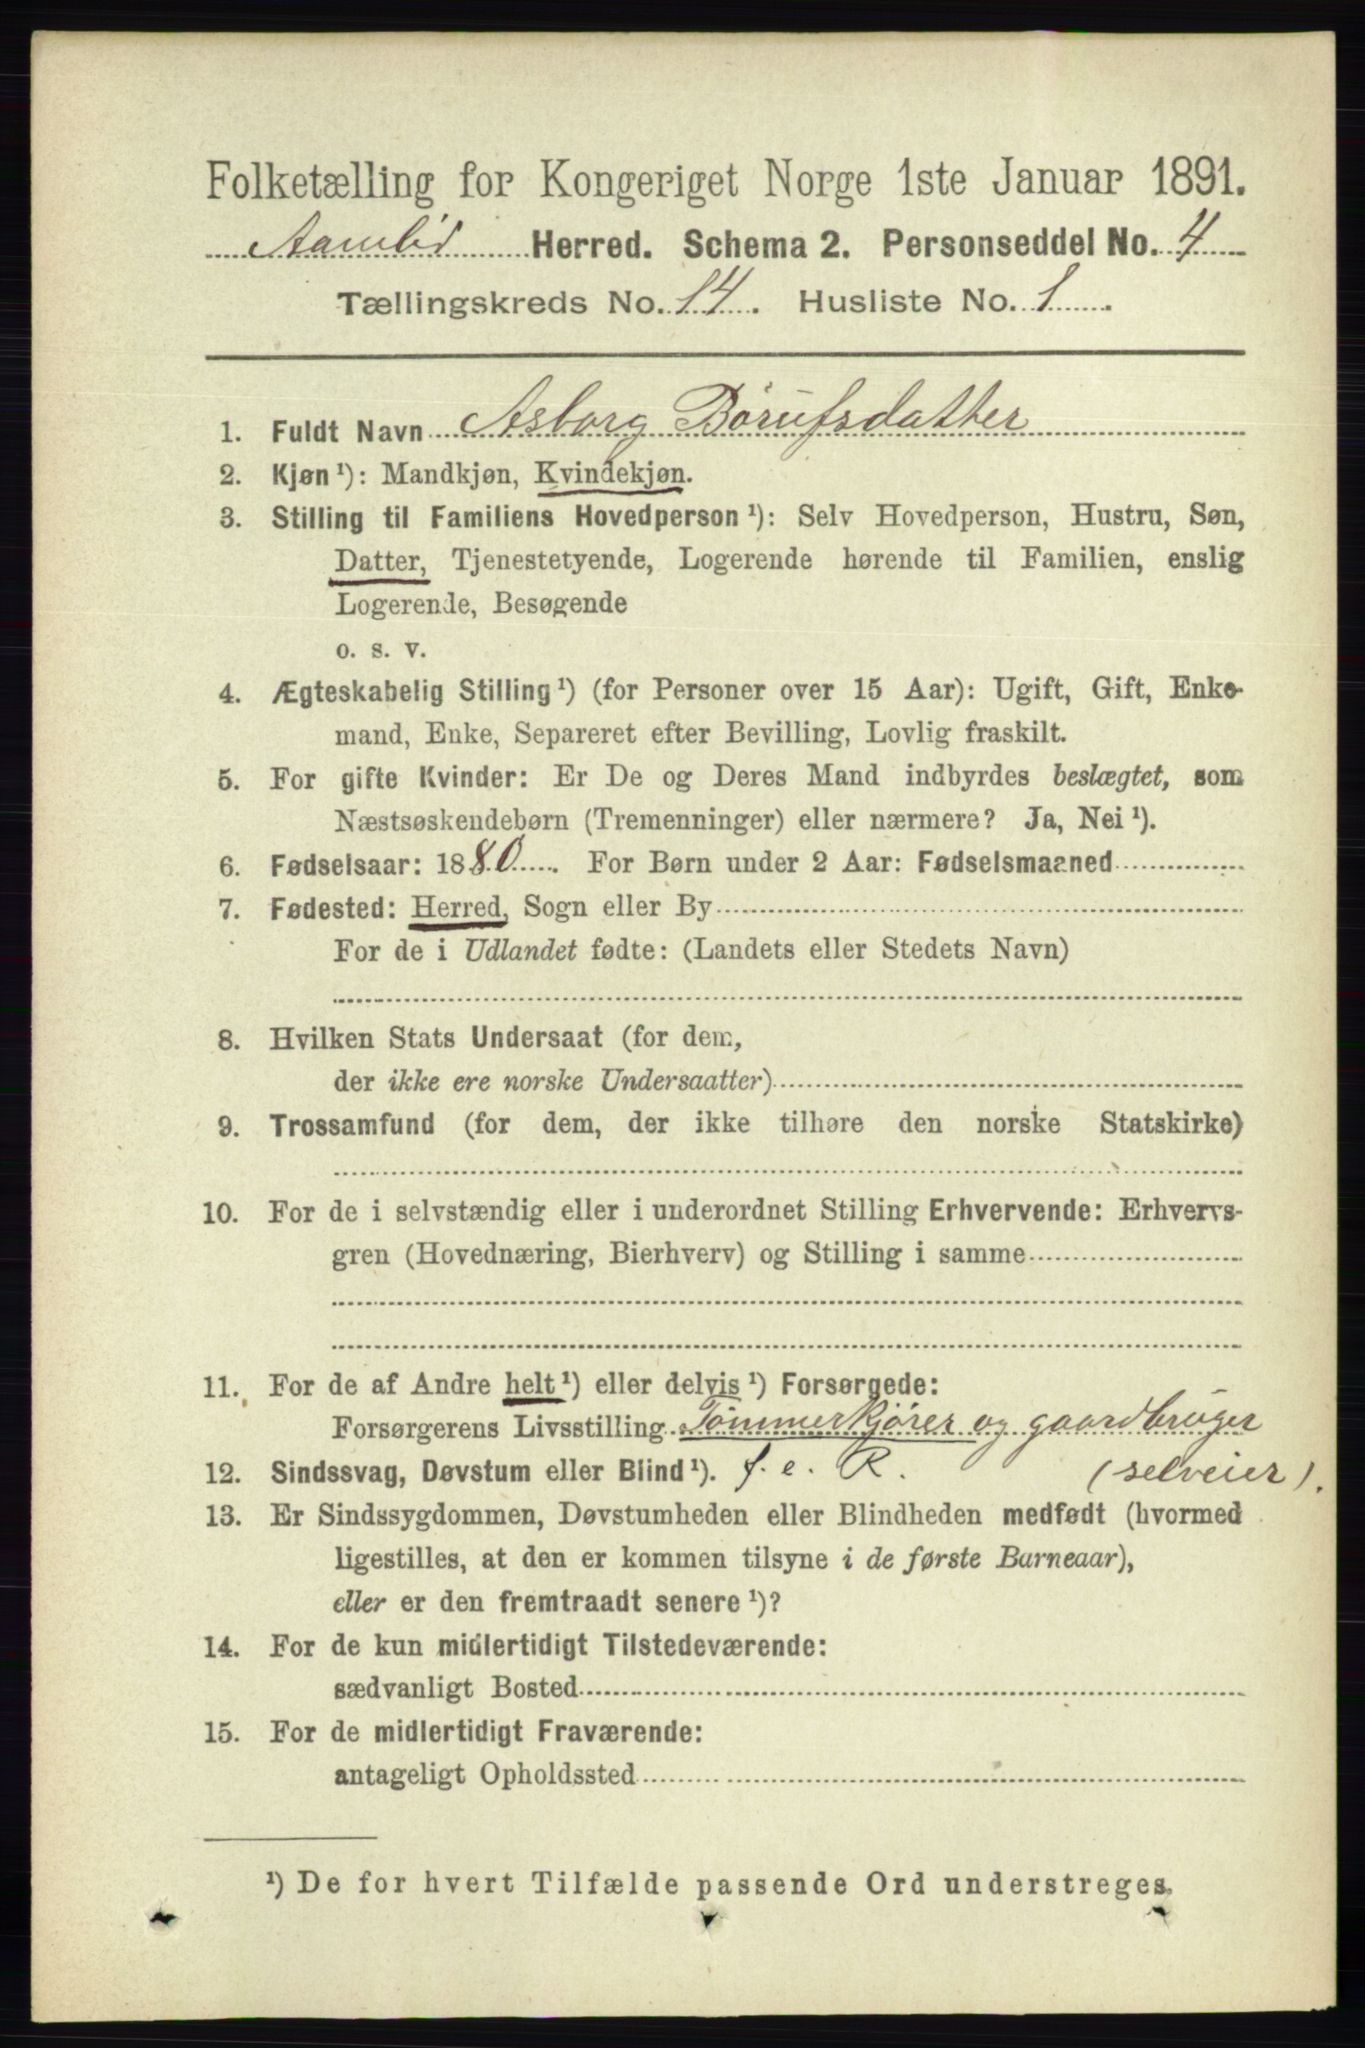 Folketælling for Kongeriget Norge 1ste Januar 1891.
Aamlid Herred. Schema 2. Personseddel No. 4
Tællingskreds No. 14. Husliste No. 1.
1. Fuldt Navn Asborg Børufsdatter
2. Kjøn¹): Mandkjøn, Kvindekjøn.
3. Stilling til Familiens Hovedperson¹): Selv Hovedperson, Hustru, Søn,
Datter, Tjenestetyende, Logerende hørende til Familien, enslig
Logerende, Besøgende
o. s. v.
4. Ægteskabelig Stilling¹) (for Personer over 15 Aar): Ugift, Gift, Enke-
mand, Enke, Separeret efter Bevilling, Lovlig fraskilt.
5. For gifte Kvinder: Er De og Deres Mand indbyrdes beslægtet, som
Næstsøskendebørn (Tremenninger) eller nærmere? Ja, Nei¹).
6. Fødselsaar: 1880. For Børn under 2 Aar: Fødselsmaaned
7. Fødested: Herred, Sogn eller By
For de i Udlandet fødte: (Landets eller Stedets Navn)
8. Hvilken Stats Undersaat (for dem,
der ikke ere norske Undersaatter)
9. Trossamfund (for dem, der ikke tilhøre den norske Statskirke)
10. For de i selvstændig eller i underordnet Stilling Erhvervende: Erhvervs-
gren (Hovednæring, Bierhverv) og Stilling i samme
11. For de af Andre helt¹) eller delvis¹) Forsørgede:
Forsørgerens Livsstilling Tømmerkjører og gaardbruger
12. Sindssvag, Døvstum eller Blind¹). f. e. R. (selveier).
13. Er Sindssygdommen, Døvstumheden eller Blindheden medfødt (hvormed
ligestilles, at den er kommen tilsyne i de første Barneaar),
eller er den fremtraadt senere¹)?
14. For de kun midlertidigt Tilstedeværende:
sædvanligt Bosted
15. For de midlertidigt Fraværende:
antageligt Opholdssted
¹) De for hvert Tilfælde passende Ord understreges.